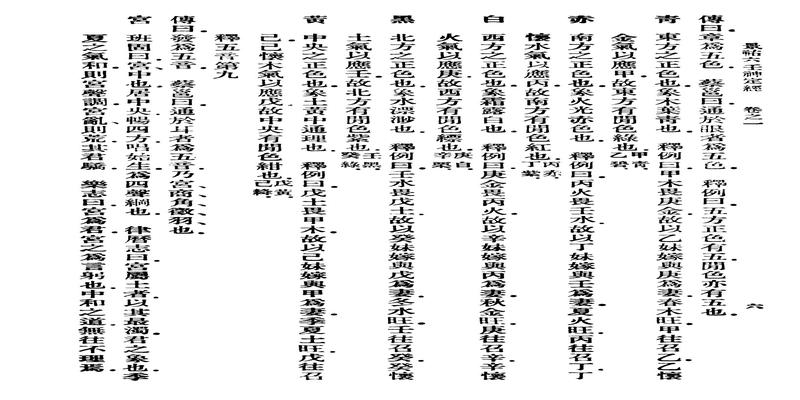 景祐六壬神定經 卷之一 六
傳曰章為五色 蔡邕曰通於眼者為五色 釋例曰五方正色有五間色亦有五也
青 東方之正色也象木葉青也 釋例曰甲木畏庚金故以乙妹嫁與庚為妻春木旺甲往召乙乙懷
金氣以應甲故東方有間色綠也甲青乙綠
赤 南方之正色也象火光赤色也 釋例曰丙火畏壬水故以丁妹嫁與壬為妻夏火旺丙往召丁丁
懷水氣以應丙故南方有間色紅也丙赤丁紫
白 西方之正色也象霜露白也 釋例曰庚金畏丙火故以辛妹嫁與丙為妻秋金旺庚往召辛辛懷
火氣以應庚故西方有間色縹也庚白辛縹
黑 北方之正色也象水深渺也 釋例曰壬水畏戊土故以癸妹嫁與戊為妻冬水旺壬往召癸癸懷
土氣以應壬故北方有間色紫也壬黑癸綠
黃 中央之正色也象土黃中通理也 釋例曰戊土畏甲木故以己妹嫁與甲為妻季夏土旺戊往召
己己懷木氣以應戊故中央有間色紺也戊黃己
釋五音第九
傳曰發為五音 蔡邕曰通於耳者為五音乃宮商角徵羽也
宮 班固曰宮中也居中央暢四方唱始生為四聲綱也 律曆志曰宮屬土者以其最濁君之象也季
夏之氣和則宮聲調宮亂則荒其君驕 樂志曰宮為君宮之為言躬也中和之道無往不理焉